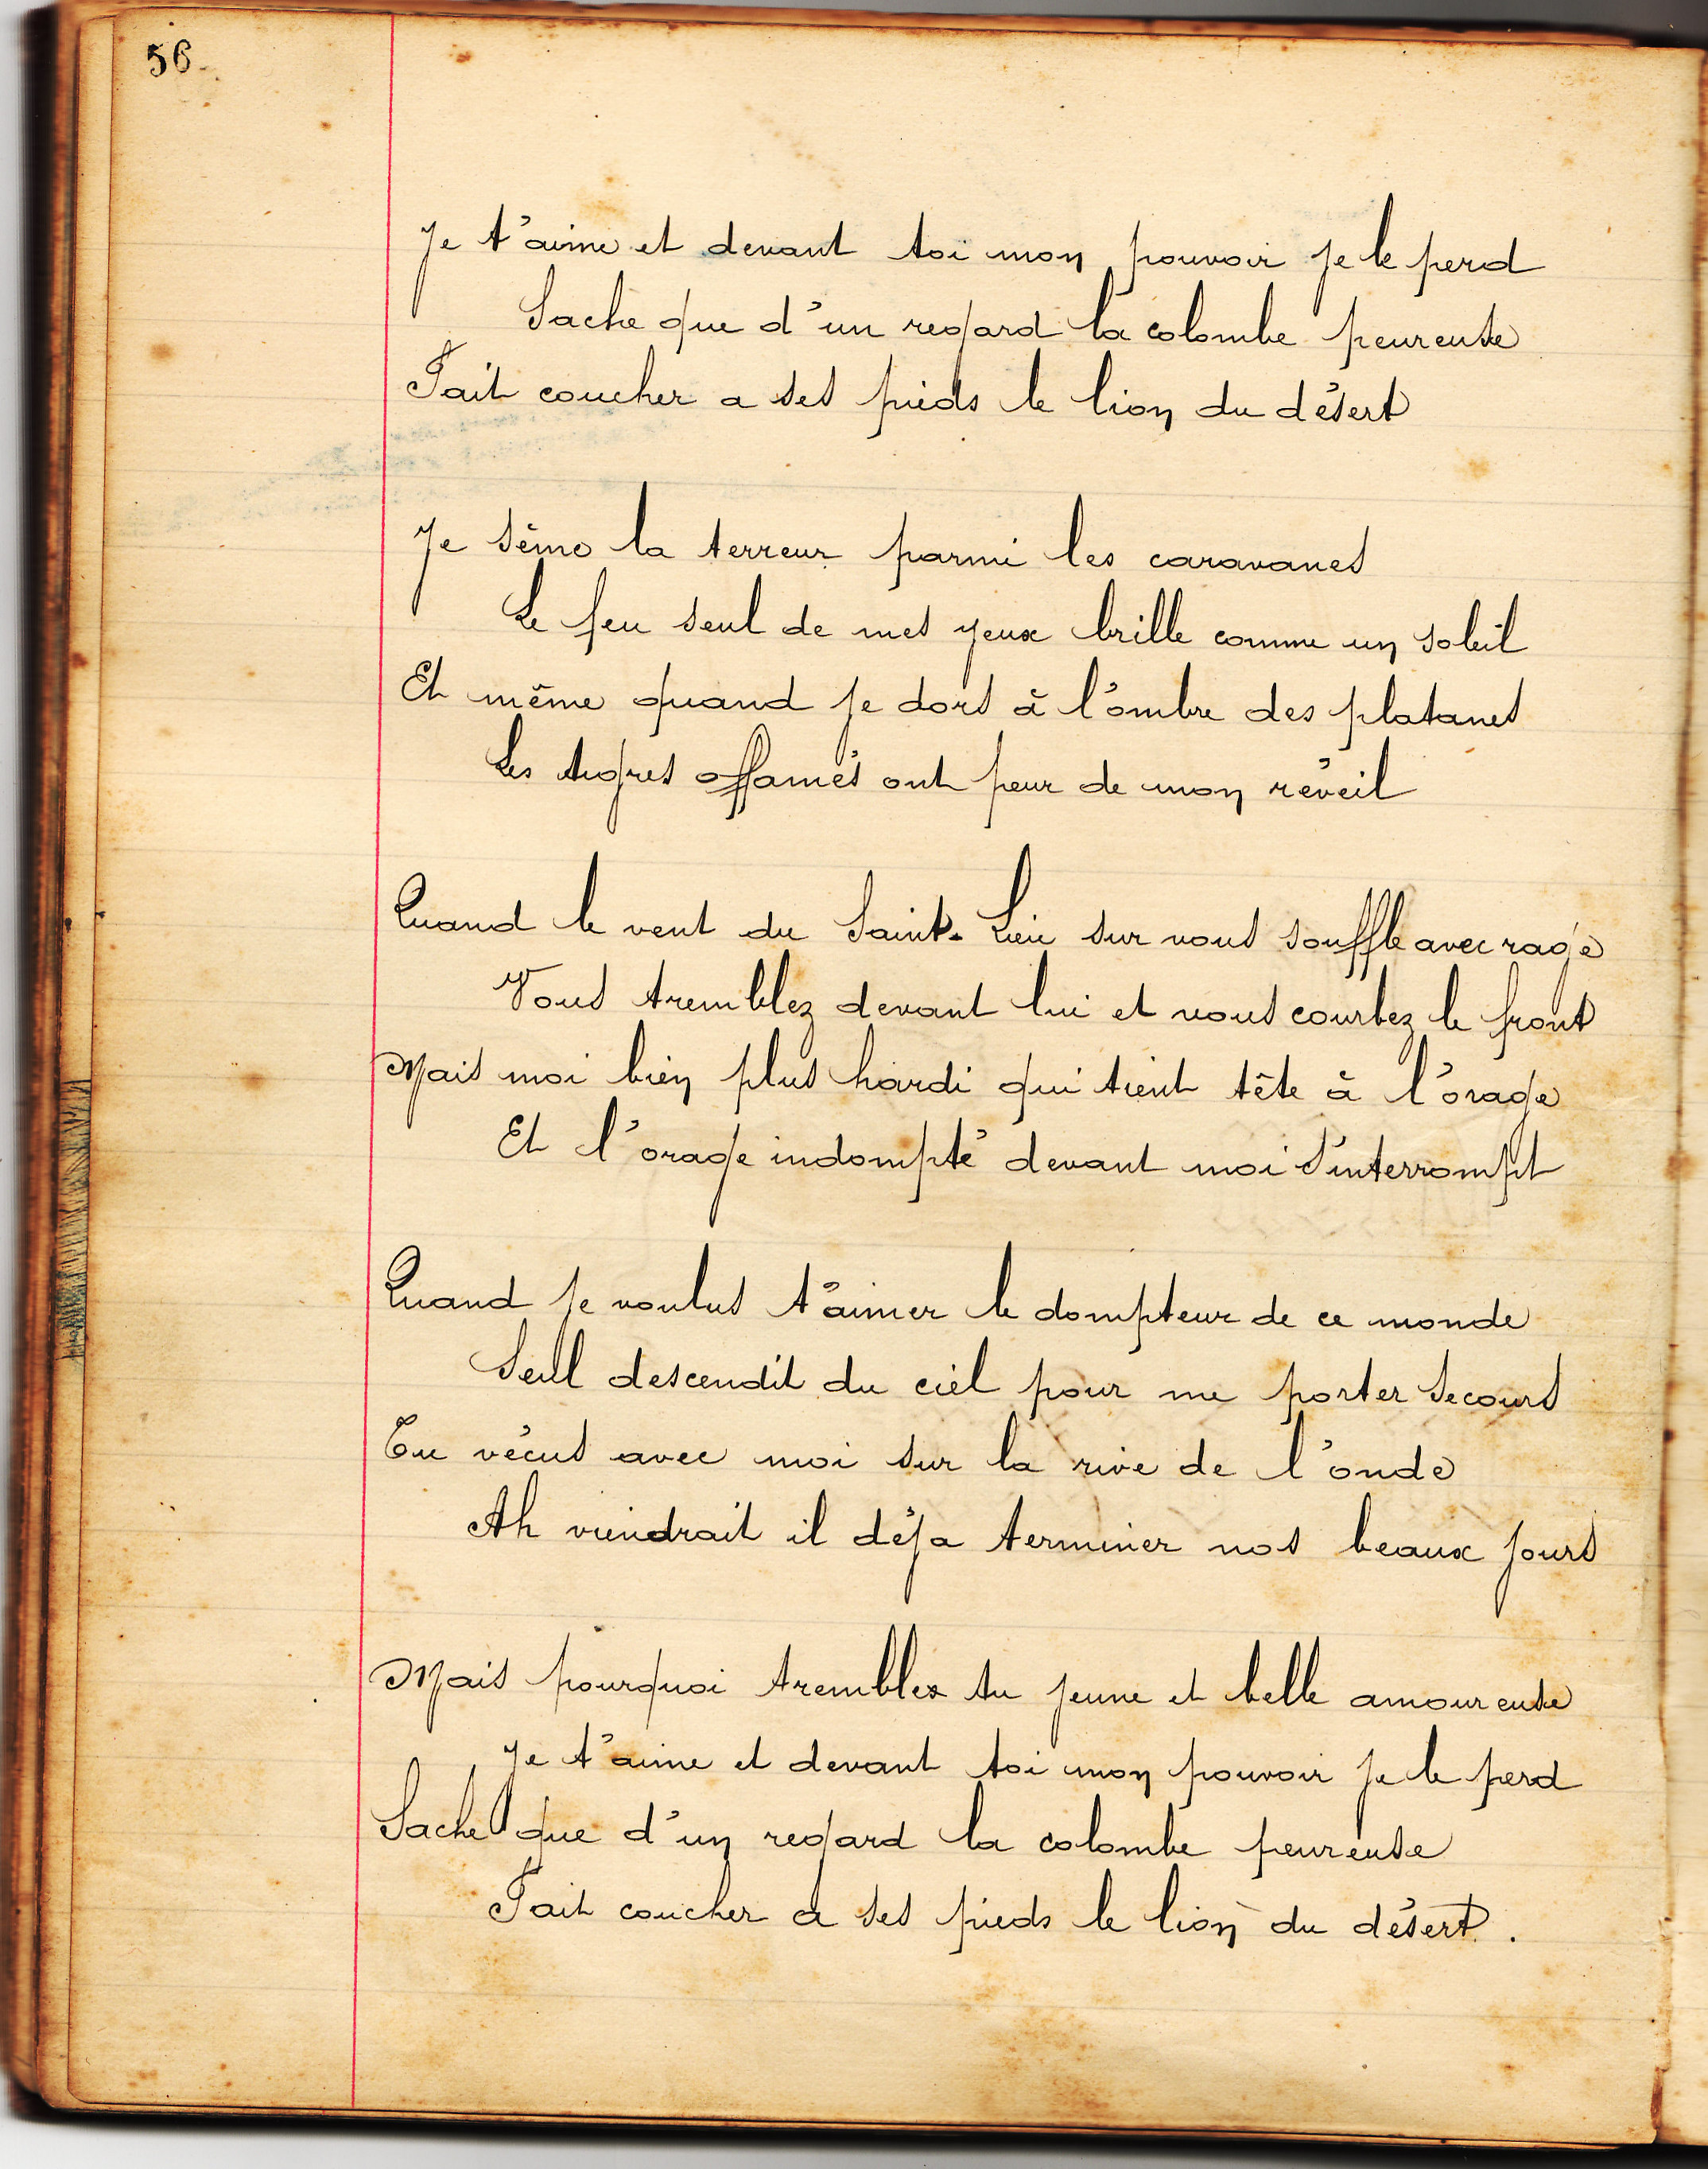 56
Je t'aime et devant toi mon pouvoir je le perd
Sache que d'un regard la colombe peureuse
Fait coucher a ses pieds le lion du désert
Je sème la terreur parmi les caravanes
Le feu seul de mes yeux brille comme un soleil
Et même quand je dors à l'ombre des platanes
Les tigres affamés ont peur de mon réveil
Quand le vent du Saint-Lieu sur vous souffle avec rage
Vous tremblez devant lui et vous courbez le front
Mais moi bien plus hardi qui tient tête à l'orage
Et l'orage indompté devant moi s'interrompt
Quand je voulus t'aimer le dompteur de ce monde
Seul descendit du ciel pour me porter secours
Tu vécus avec moi sur la rive de l'onde
Ah viendrait il déja terminer nos beaux jours
Mais pourquoi trembles tu jeune et belle amoureuse
Je t'aime et devant toi mon pouvoir je le perd
Sache que d'un regard la colombe peureuse
Fait coucher a ses pieds le lion du désert.